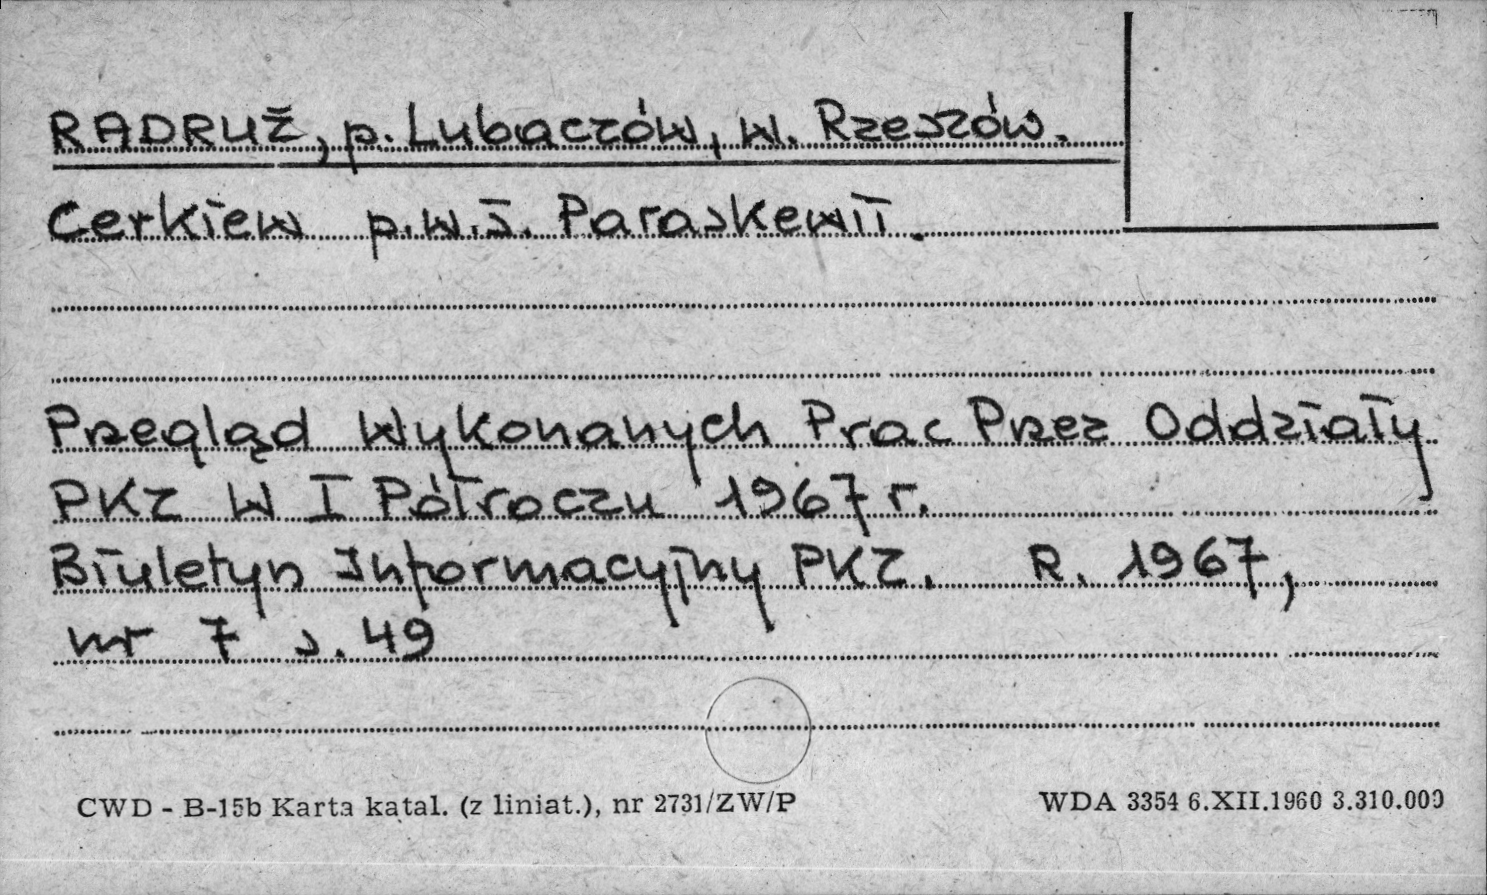 RADRUŻ, p. Lubaczów, w. Rzeszów.
Cerkiew p.w.ś. Paraskewii.
Przegląd Wykonanych Prac Przez Oddziały
PKZ W I Półroczu 1967 r.
Biuletyn Informacyjny PKZ. R. 1967,
nr 7 s. 49
CWD - B-15b Karta katal. (z liniat.), nr 2731/ZW/P
WDA 3354 6.XII.1960 3.310.000